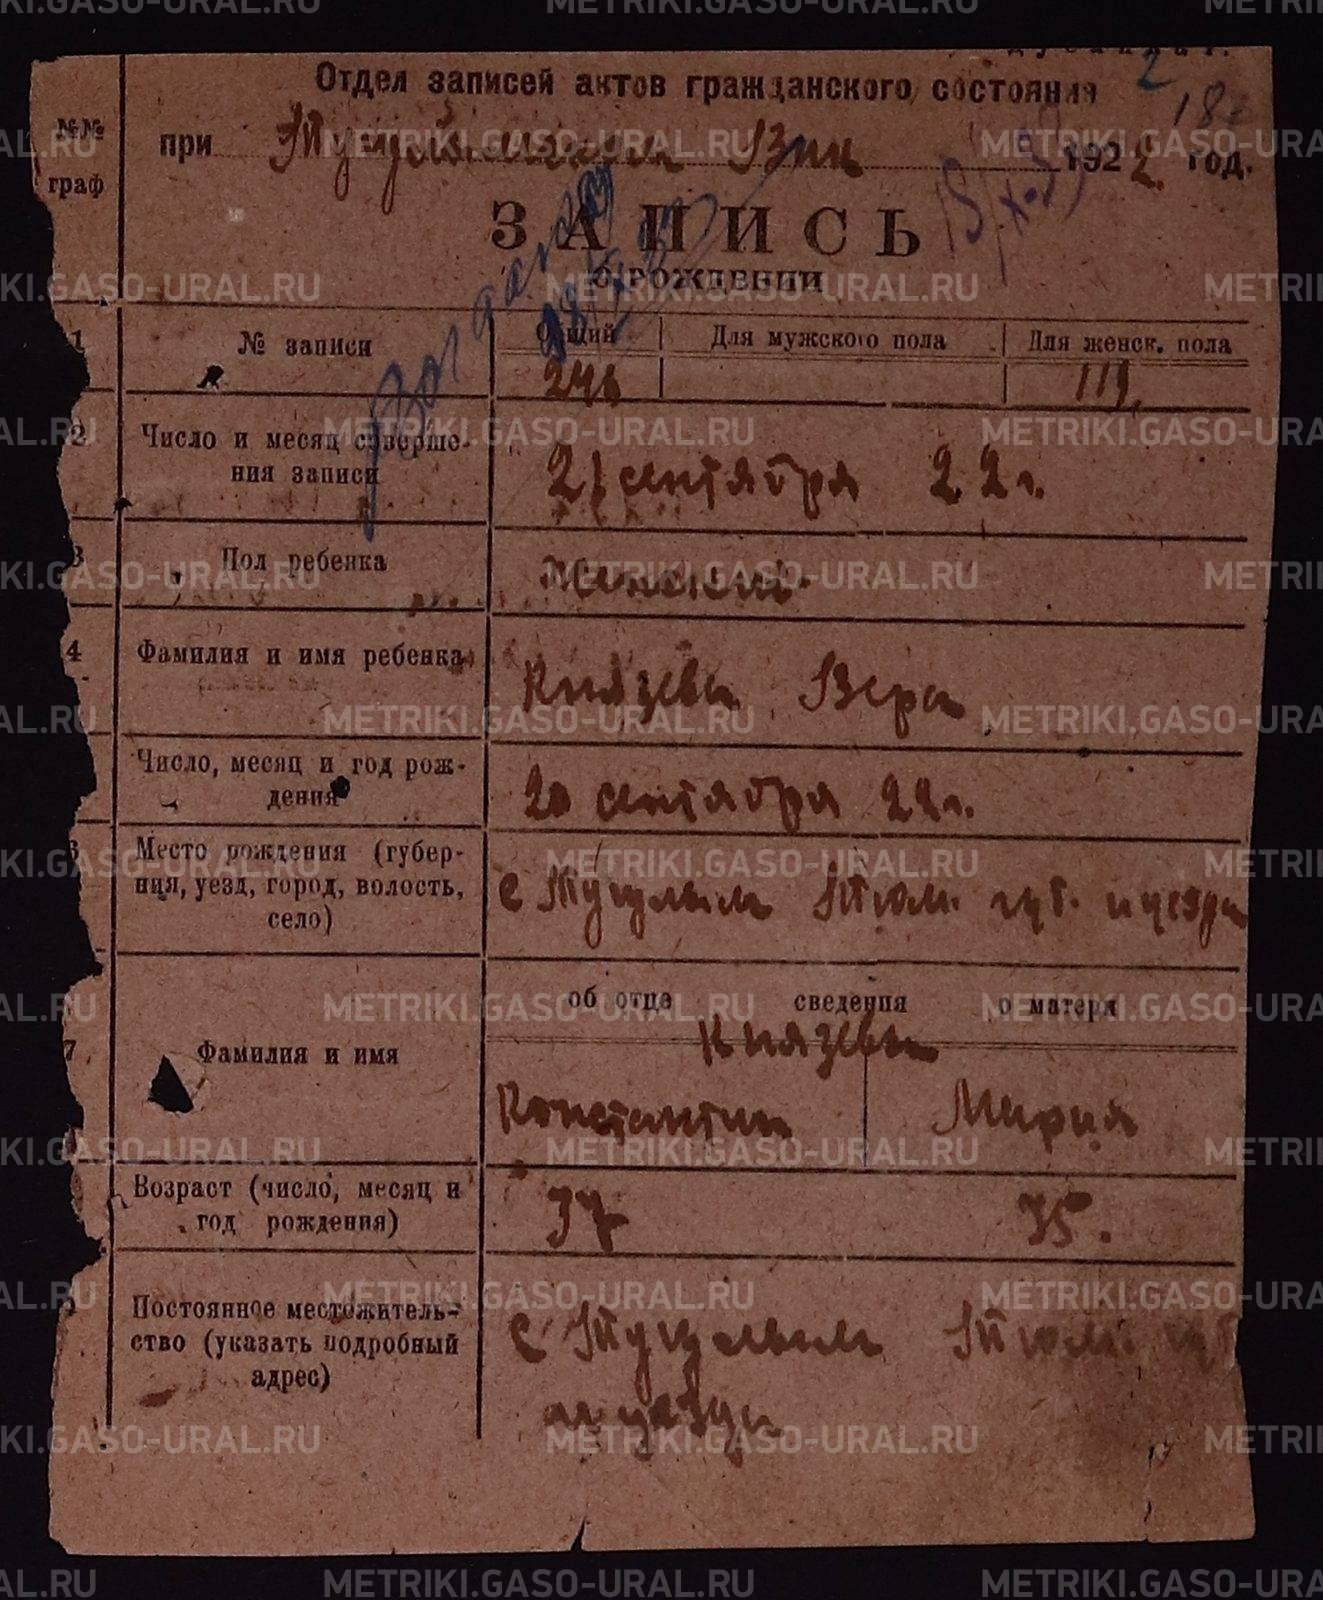 Отдел записей актов гражданского состояния
2
№№ граф
при Тугулымском Вик 1922 год.
ЗАПИСЬ
О РОЖДЕНИИ
1 № записи Общий Для мужского пола Для женск. пола
246 119
2 Число и месяц соверше-
ния записи
21 сентября 22 г.
3 Пол ребенка женский
4 Фамилия и имя ребенка Князева Вера
Число, месяц и год рож-
дения
20 сентября 22 г.
6 Место рождения (губер-
ния, уезд, город, волость,
село)
с Тугулым Тюм. губ. и уезда
об отце сведения о матери
Князевы
7 Фамилия и имя
Константин Мария
Возраст (число, месяц и
год рождения)
37 35.
Постоянное местожитель-
ство (указать подробный
адрес)
с Тугулым Тюм. губ
и уезда
METRIKI.GASO-URAL.RU